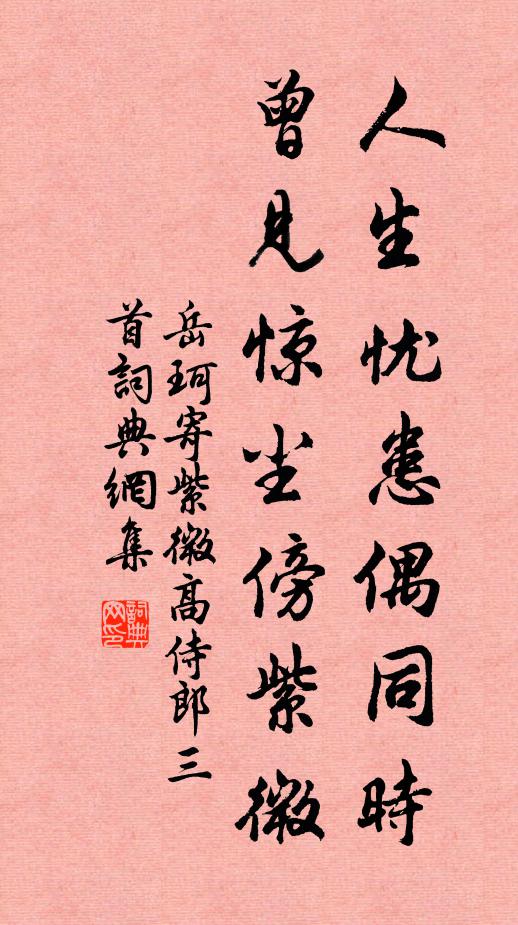 人生忧患偶同時
曾見惊尘傍紫微
岳珂寄紫微高侍郎三
首詞典網集
詞典
网印